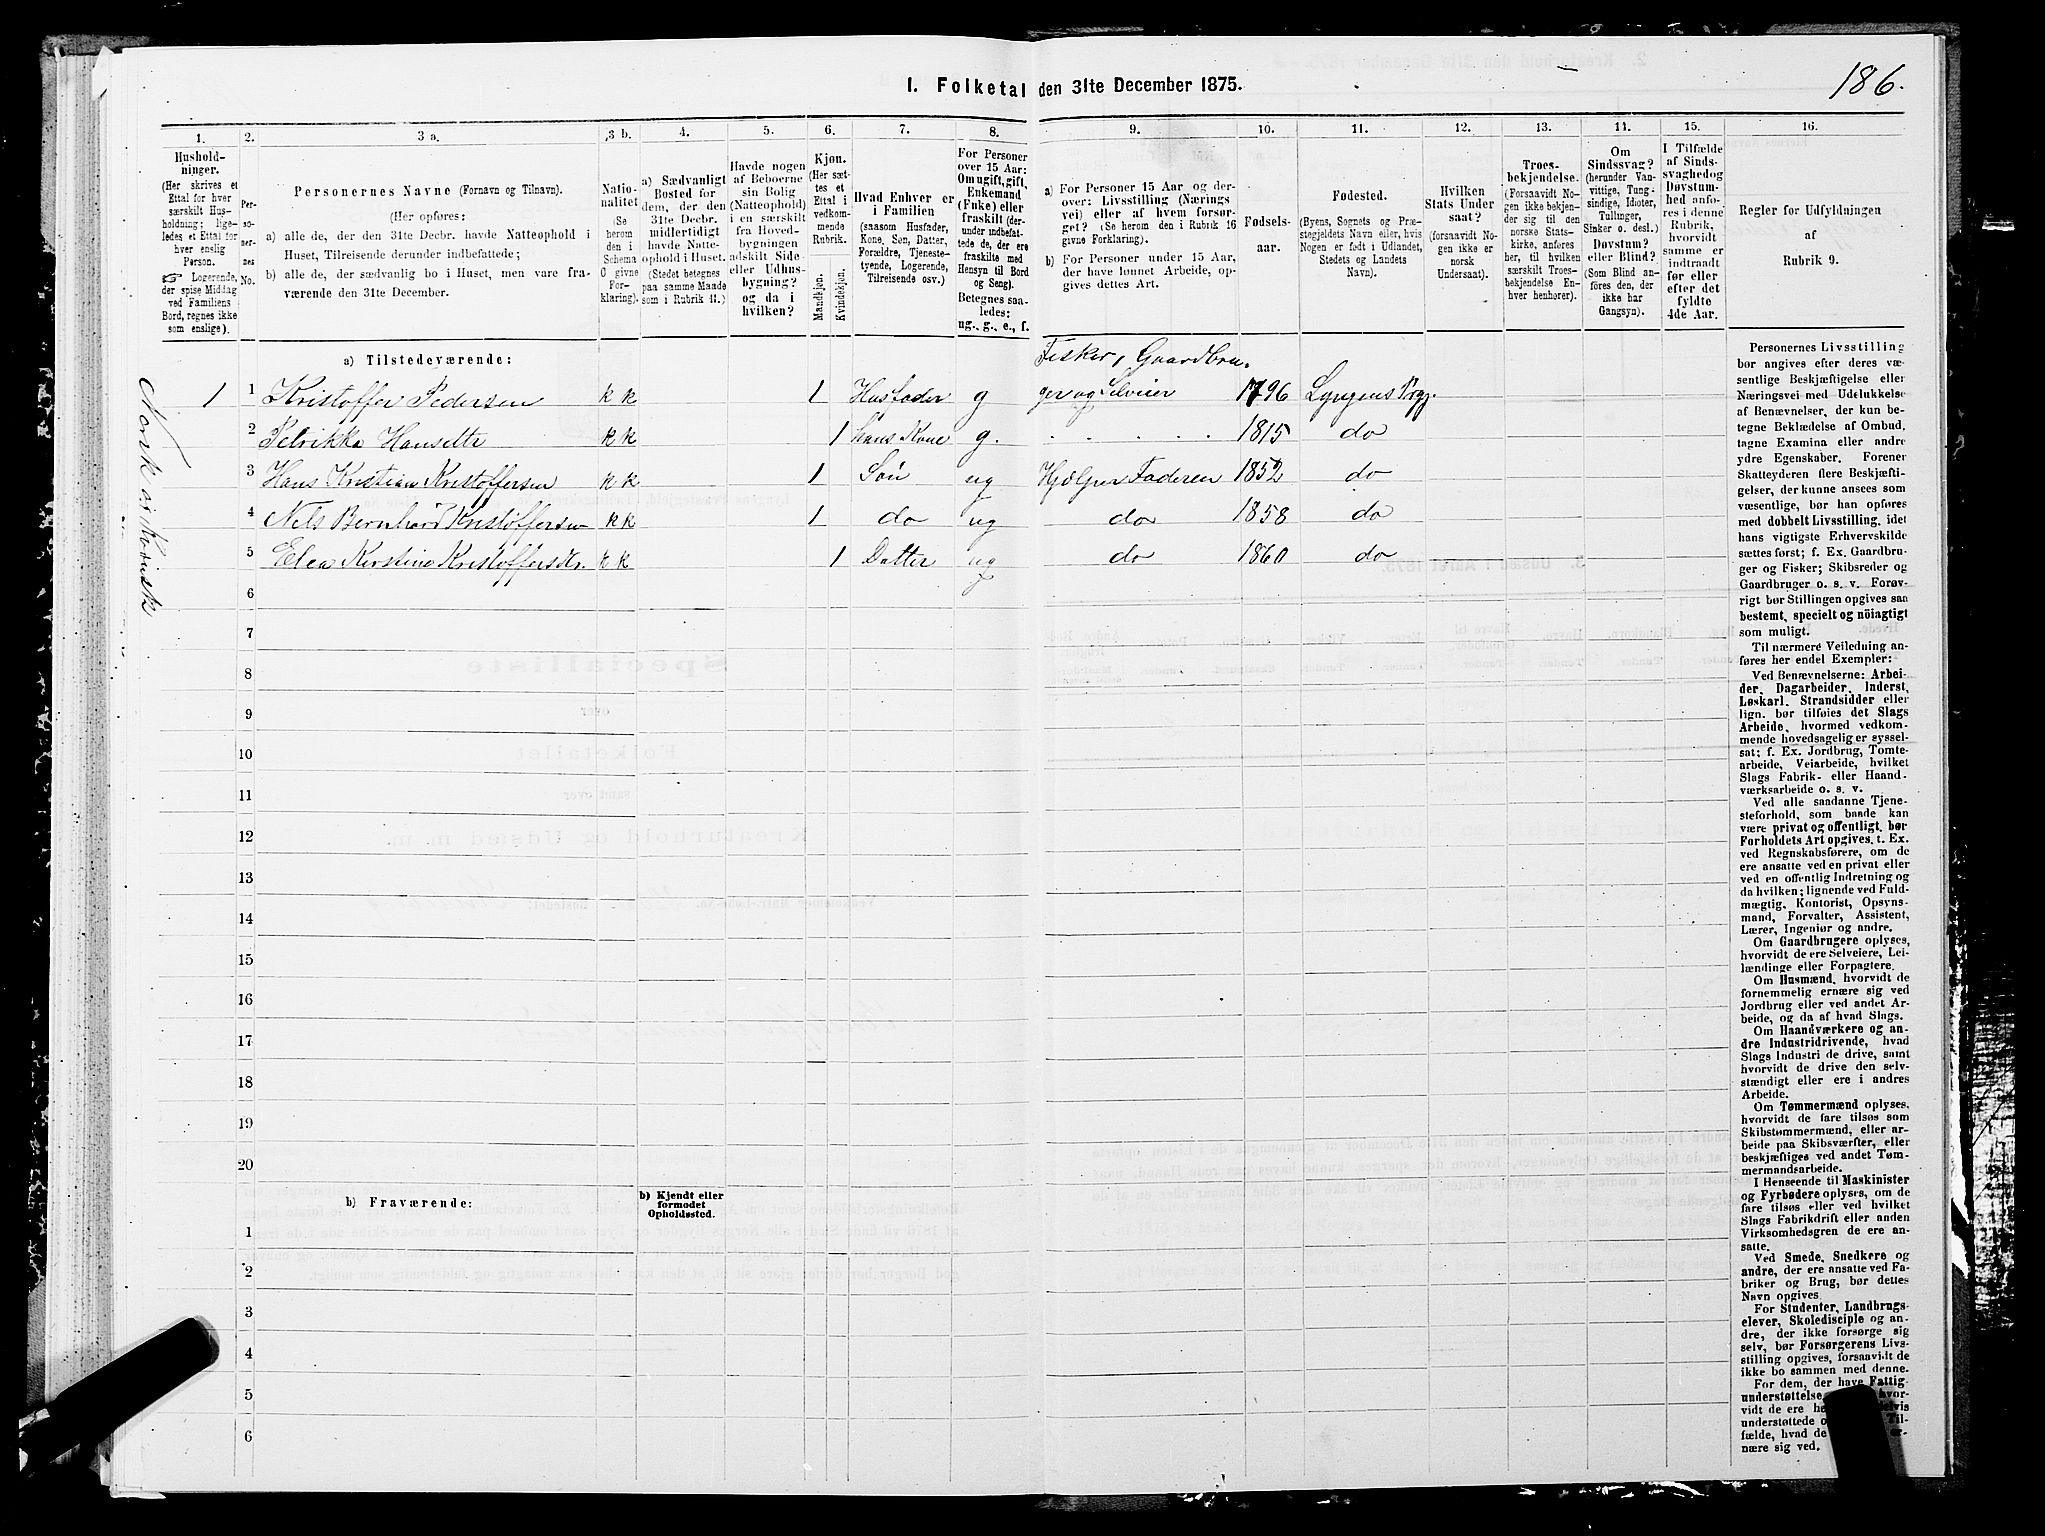 I. Folketal den 31te December 1875.
186.
1. 2. 3 a. 3 b. 4. 5. 6. 7. 8. 9. 10. 11. 12. 13. 14. 15. 16.
Hushold-
ninger.
(Her skrives et
Ettal for hver
særskilt Hus-
holdning; lige-
ledes et Ettal for
hver enslig
Person.
☞ Logerende,
der spise Middag
ved Familiens
Bord, regnes ikke
som enslige).
Per-
so-
ner-
nes
No.
Personernes Navne (Fornavn og Tilnavn).
(Her opføres:
a) alle de, der den 31te Decbr. havde Natteophold i
Huset, Tilreisende derunder indbefattede;
b) alle de, der sædvanlig bo i Huset, men vare fra-
værende den 31te December.
Natio-
nalitet
(Se
herom
den i
Schema
O givne
For-
klaring).
a) Sædvanligt
Bosted for
dem, der den
31te Decbr.
midlertidigt
havde Natte-
ophold i Huset.
(Stedet betegnes
paa samme Maade
som i Rubrik 11.)
Havde nogen
af Beboerne
sin Bolig
(Natteophold)
i en særskilt
fra Hoved-
bygningen
adskilt Side-
eller Udhus-
bygning?
og da i
hvilken?
Kjøn.
(Her sæt-
tes et
Ettal i
vedkom-
mende
Rubrik.
Mandkjøn.
Kvindekjøn.
Hvad Enhver er
i Familien
(saasom Husfader,
Kone, Søn, Datter,
Forældre, Tjeneste-
tyende, Logerende,
Tilreisende osv.)
For Personer
over 15 Aar:
Om ugift, gift,
Enkemand
(Enke) eller
fraskilt (der-
under indbefat-
tede de, der ere
fraskilte med
Hensyn til Bord
og Seng).
Betegnes saa-
ledes:
ug., g., e., f.
a) For Personer 15 Aar og der-
over: Livsstilling (Nærings
vei) eller af hvem forsør-
get? (Se herom den i Rubrik 16
givne Forklaring).
b) For Personer under 15 Aar,
der have lønnet Arbeide, op-
gives dettes Art.
Fødsels-
aar.
Fødested.
(Byens, Sognets og Præ-
stegjeldets Navn eller, hvis
Nogen er født i Udlandet,
Stedets og Landets
Navn).
Hvilken
Stats Under
saat?
(forsaavidt No-
gen ikke er
norsk
Undersaat).
Troes-
bekjendelse.
(Forsaavidt No-
gen ikke bekjen-
der sig til den
norske Stats-
kirke, anføres
her, til hvilken
særskilt Troes-
bekjendelse En-
hver henhører).
Om
Sindssvag?
(herunder Van-
vittige, Tung-
sindige, Idioter,
Tullinger,
Sinker o. desl.)
Døvstum?
eller Blind?
(Som Blind an-
føres den, der
ikke har
Gangsyn).
I Tilfælde
af Sinds-
svaghed og
Døvstum-
hed anfø-
res i denne
Rubrik,
hvorvidt
samme er
indtraadt
før eller
efter det
fyldte
4de Aar.
Regler for Udfyldningen
af
Rubrik 9.
a) Tilstedeværende:
Fisker, Gaardbru-
1 1 Kristoffer Pedersen k k 1 Husfader g ger og Selveier 1796 Lyngens Prgj.
2 Petrikka Hansdtr k k 1 hans Kone g. 1815 do
3 Hans Kristian Kristoffersen k k 1 Søn ug Hjælper Faderen 1852 do
4 Nels Bernhard Kristoffersen k k 1 do ug do 1858 do
5 Elea Kirstine Kristoffersdtr. k k 1 Datter ug do 1860 do
6
7
8
9
10
11
12
13
14
15
16
17
18
19
20
Norsk og Kvænsk
b) Fraværende:
b) Kjendt eller
formodet
Opholdssted.
1
2
3
4
5
6
Personernes Livsstilling
bør angives efter deres væ-
sentlige Beskjæftigelse eller
Næringsvei med Udelukkelse
af Benævnelser, der kun be-
tegne Beklædelse af Ombud,
tagne Examina eller andre
ydre Egenskaber. Forener
Skatteyderen flere Beskjæfti-
gelser, der kunne ansees som
væsentlige, bør han opføres
med dobbelt Livsstilling, idet
hans vigtigste Erhvervskilde
sættes først; f. Ex. Gaardbru-
ger og Fisker; Skibsreder og
Gaardbruger o. s. v. Forøv-
rigt bør Stillingen opgives saa
bestemt, specielt og nöiagtigt
som muligt.
Til nærmere Veiledning an-
føres her endel Exempler:
Ved Benævnelserne: Arbei-
der, Dagarbeider, Inderst,
Løskarl, Strandsidder eller
lign. bør tilføies det Slags
Arbeide, hvormed vedkom-
mende hovedsagelig er syssel-
sat; f. Ex. Jordbrug, Tomte-
arbeide, Veiarbeide, hvilket
Slags Fabrik- eller Haand-
værksarbeide o. s. v.
Ved alle saadanne Tjene-
steforhold, som baade kan
være privat og offentligt, bør
Forholdets Art opgives, t. Ex.
ved Regnskabsførere, om de
ere ansatte ved en privat eller
ved en offentlig Indretning og
da hvilken; lignende ved Fuld-
mægtig, Kontorist, Opsyns-
mand, Forvalter, Assistent,
Lærer, Ingeniør og andre.
Om Gaardbrugere oplyses,
hvorvidt de ere Selveiere, Lei-
lændinge eller Forpagtere.
Om Husmænd, hvorvidt de
fornemmelig ernære sig ved
Jordbrug eller ved andet Ar-
beide, og da af hvad Slags.
Om Haandværkere og an-
dre Industridrivende, hvad
Slags Industri de drive, samt
hvorvidt de drive den selv-
stændigt eller ere i andres
Arbeide.
Om Tømmermænd oplyses,
hvorvidt de fare tilsøs som
Skibstømmermænd, eller ar-
beide paa Skibsværfter, eller
beskjæftiges ved andet Tøm-
mermandsarbeide.
I Henseende til Maskinister
og Fyrbødere oplyses, om de
fare tilsøs eller ved hvilket
Slags Fabrikdrift eller anden
Virksomhedsgren de ere an-
satte.
Ved Smede, Snedkere og
andre, der ere ansatte ved Fa-
briker og Brug, bør dettes
Navn opgives.
For Studenter, Landbrugs-
elever, Skoledisciple og an-
dre, der ikke forsørge sig
selv, bør Forsørgerens Livs-
stilling opgives, forsaavidt de
ikke bo sammen med denne.
For dem, der have Fattig-
understøttelse, hvor-
vidt de ere
understøttede
fælde, hvad de
nære sig ved.